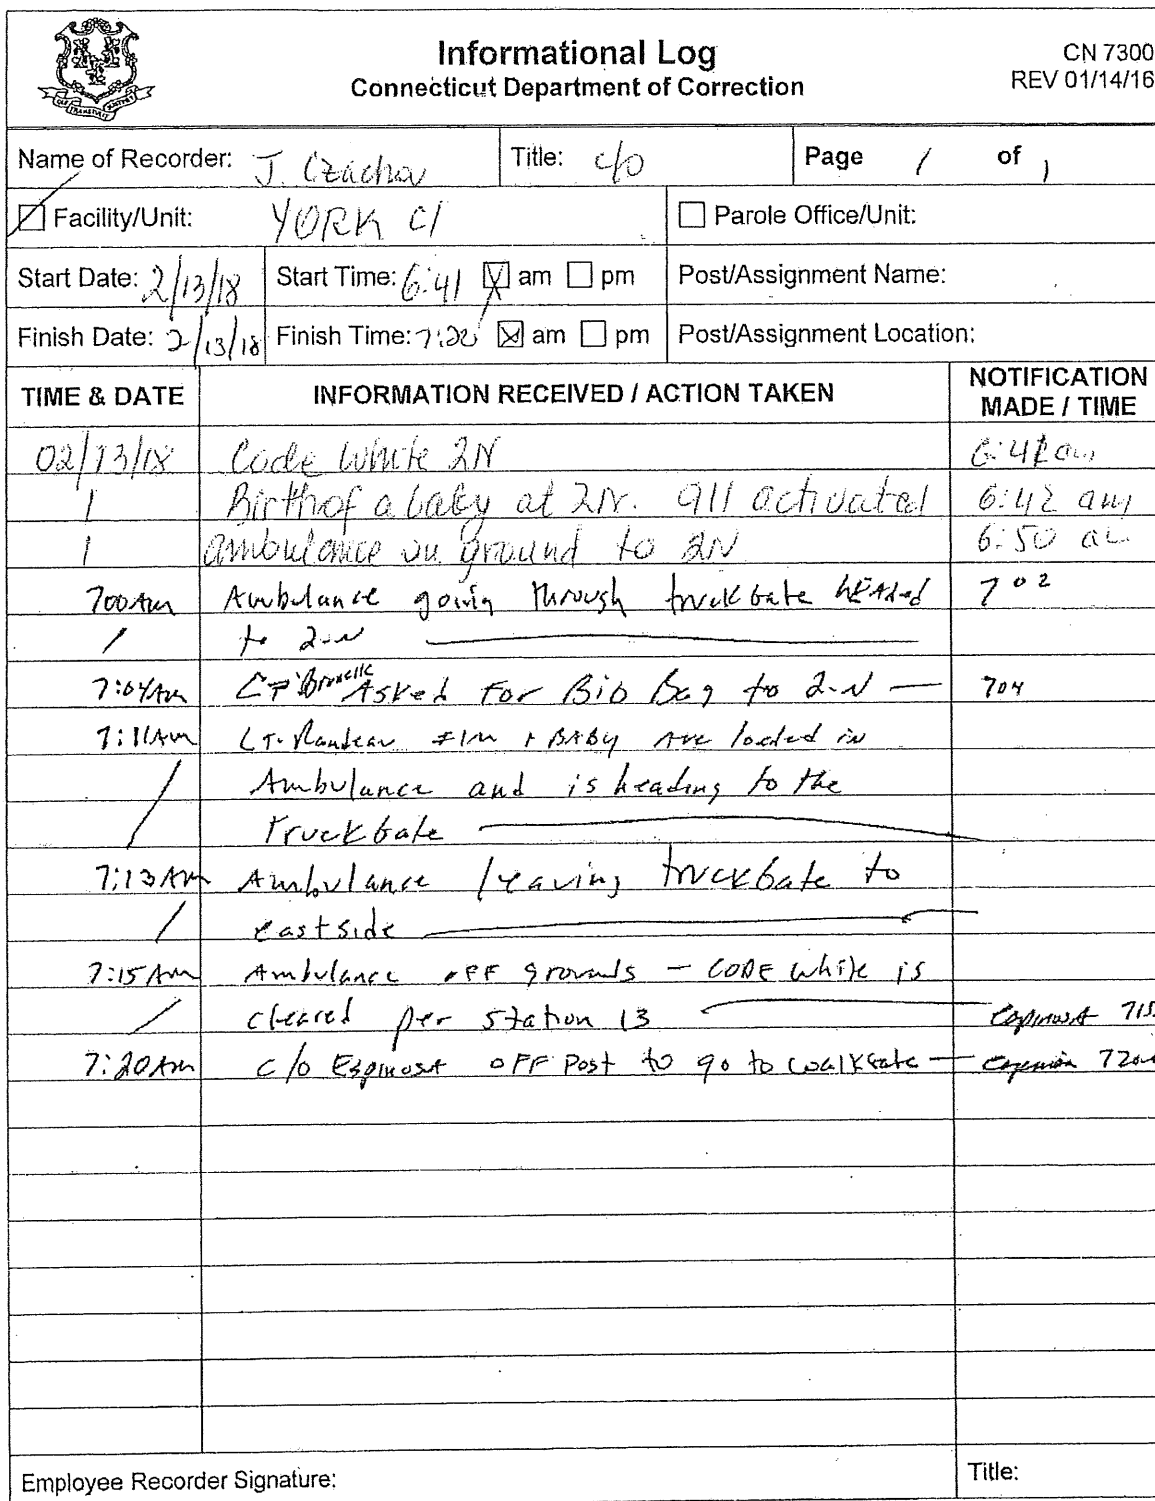 Informational Log
Connecticut Department of Correction
CN 7300
REV 01/14/16
Name of Recorder: J. Czachor
Title: c/o
Page 1 of 1
Facility/Unit: YORK CI
Parole Office/Unit:
Start Date: 2/13/18
Start Time: 6:41 am pm
Post/Assignment Name:
Finish Date: 2/13/18
Finish Time: 7:20 am pm
Post/Assignment Location:
TIME & DATE
INFORMATION RECEIVED / ACTION TAKEN
NOTIFICATION MADE / TIME
02/13/18 Code White 2N am
Birth of a baby at 2N. 911 activated 6:42 am
Ambulance on ground to 2N 6:50
700 Am Ambulance going through truckgate headed 702
to 2-N
7:04 Am Asked For Bio Bag to 2-N 704
7:11 Am LT. + BABY Are loaded in
Ambulance and is heading to the
Truckgate
7:13 Am Ambulance leaving truckgate to
eastside
7:15 Am Ambulance OFF grounds - CODE white is
cleared per station 13 715
7:20 Am c/o OFF Post to go to walkgate
Employee Recorder Signature:
Title: